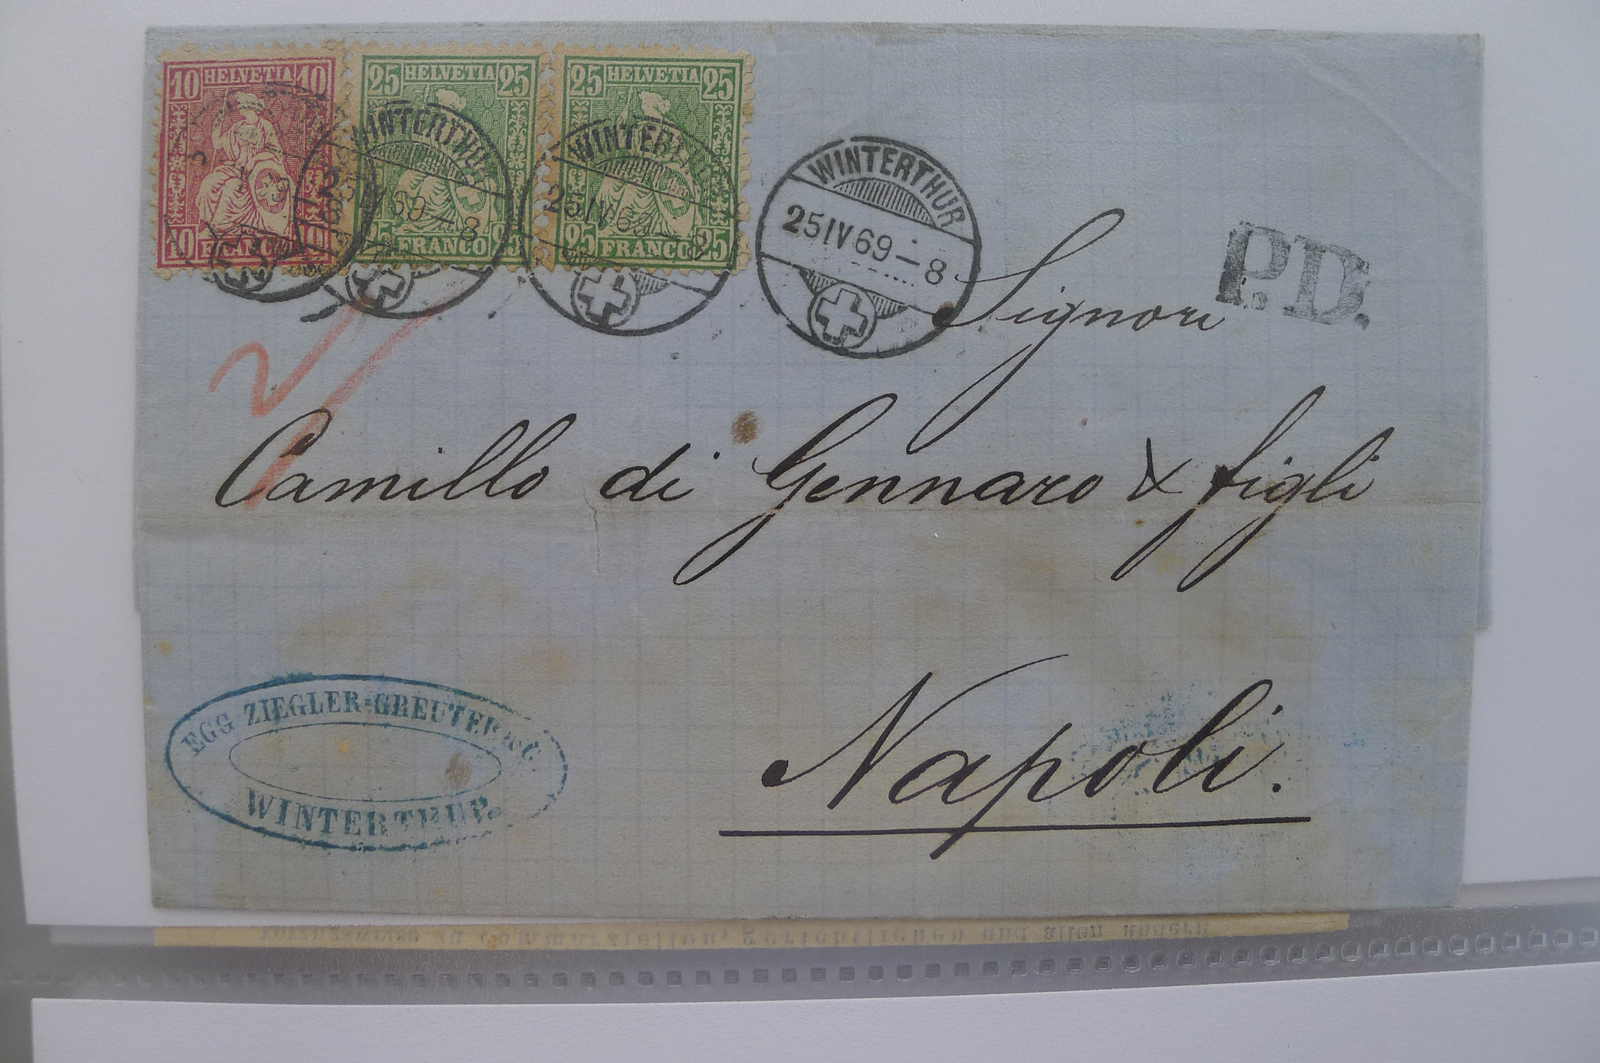 10 HELVETIA 10
10 FRANCO 10
25 HELVETIA 25
25 FRANCO 25
25 HELVETIA 25
25 FRANCO 25
WINTERTHUR
25 IV 69 - 8
WINTERTHUR
25 IV 69 - 8
WINTERTHUR
25 IV 69 - 8
P.D.
Signori
Camillo di Gennaro & figli
Napoli.
EGG ZIEGLER-GREUTER & C.
WINTERTHUR.